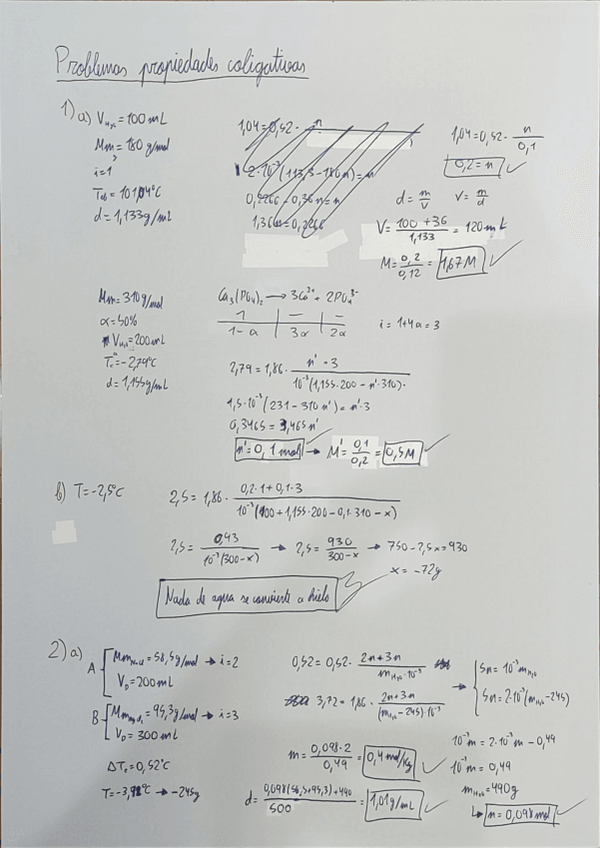 Problemas propiedades coligativas
1) a) V_H₂O = 100 mL
Mm = 180 g/mol
i = 1
d = 1,133 g/mL
1,04 = 0,52 · n / 0,1
0,2 = n
d = m/V V = m/d
V = (100 + 36) / 1,133 = 120 mL
M = 0,2 / 0,12 = 1,67 M
Mm = 310 g/mol
α = 50%
V_H₂O = 200 mL
d = 1,155 g/mL
Ca₃(PO₄)₂ → 3Ca²⁺ + 2PO₄³⁻
1 – –
1-α 3α 2α
i = 1+4α = 3
2,79 = 1,86 · n' · 3 / 10⁻³(1,155 · 200 - n' · 310)
1,5 · 10⁻³(231 - 310 n') = n' · 3
0,3465 = 3,465 n'
n' = 0,1 mol → M' = 0,1 / 0,2 = 0,5 M
b) T = -2,5°C
2,5 = 1,86 · (0,2 · 1 + 0,1 · 3) / 10⁻³(100 + 1,155 · 200 - 0,1 · 310 - x)
2,5 = 0,93 / 10⁻³(300-x) → 2,5 = 930 / 300-x → 750 - 2,5x = 930
x = -72g
Nada de agua se convierte a hielo
2) a)
A = 58,5 g/mol → i = 2
V_D = 200 mL
B = 95,3 g/mol → i = 3
V_D = 300 mL
ΔTe = 0,52°C
→ -245g
0,52 = 0,52 · (2n + 3n) / m_H₂O · 10⁻³
3,72 = 1,86 · (2n + 3n) / (m_H₂O - 245) · 10⁻³
→ 5n = 10⁻³ m_H₂O
5n = 2 · 10⁻³(m_H₂O - 245)
10⁻³m = 2 · 10⁻³m - 0,49
10⁻³m = 0,49
m_H₂O = 490g
n = 0,098 mol
m = 0,098 · 2 / 0,49 = 0,4 mol/kg
d = (0,098(58,5 + 95,3) + 490) / 500 = 1,01 g/mL